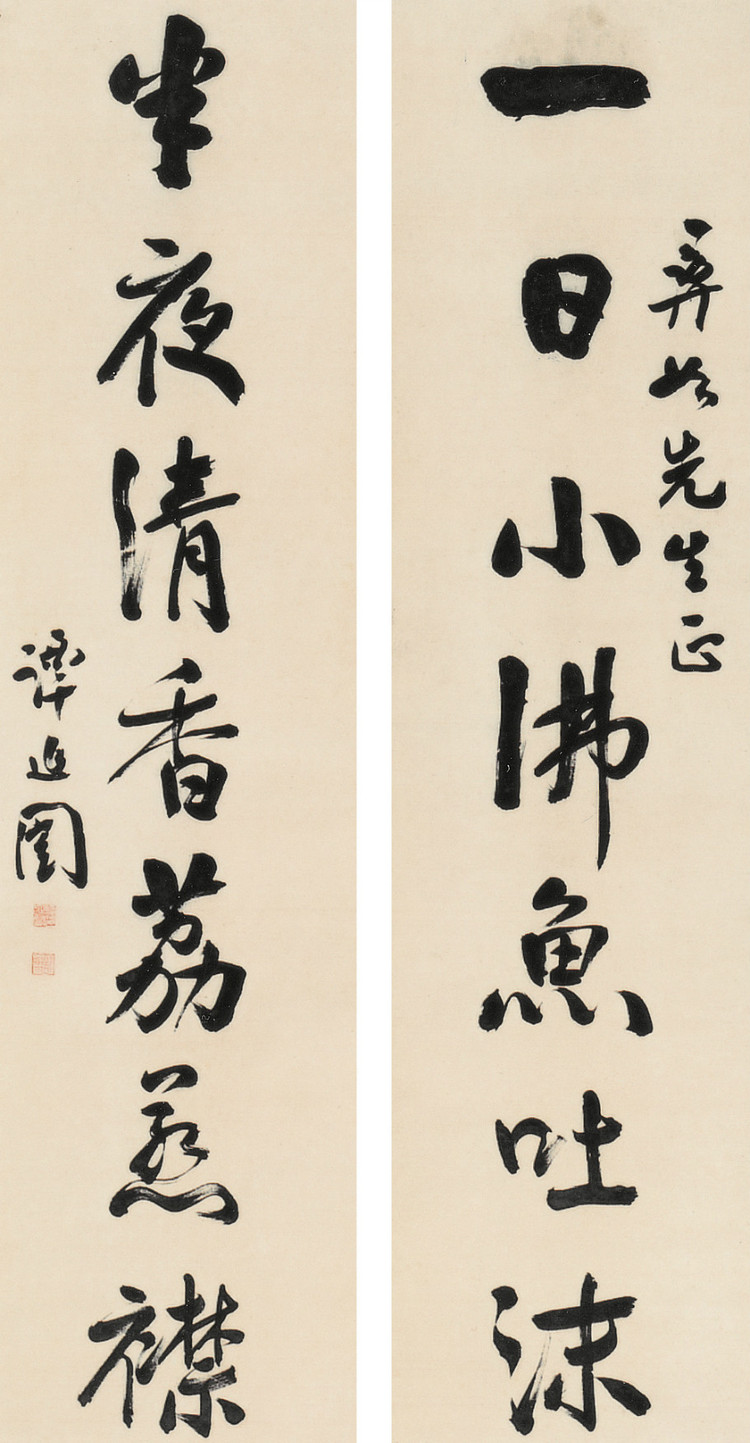 先生正
一日小沸魚吐沫
半夜清香荔蒸襟
譚延闓